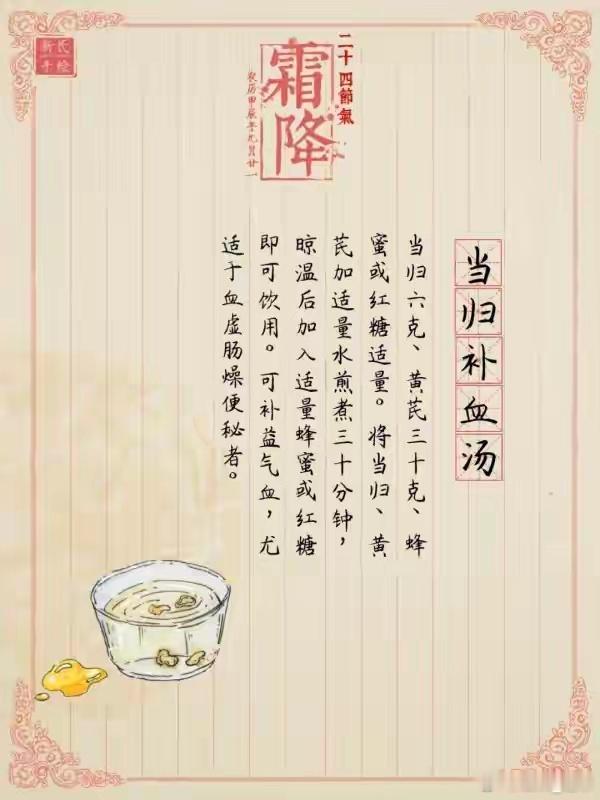 新氏
手绘
二十四節氣
霜降
农历甲辰年九月廿一
当归补血汤
当归六克、黄芪三十克、蜂
蜜或红糖适量。将当归、黄
芪加适量水煎煮三十分钟，
晾温后加入适量蜂蜜或红糖
即可饮用。可补益气血，尤
适于血虚肠燥便秘者。